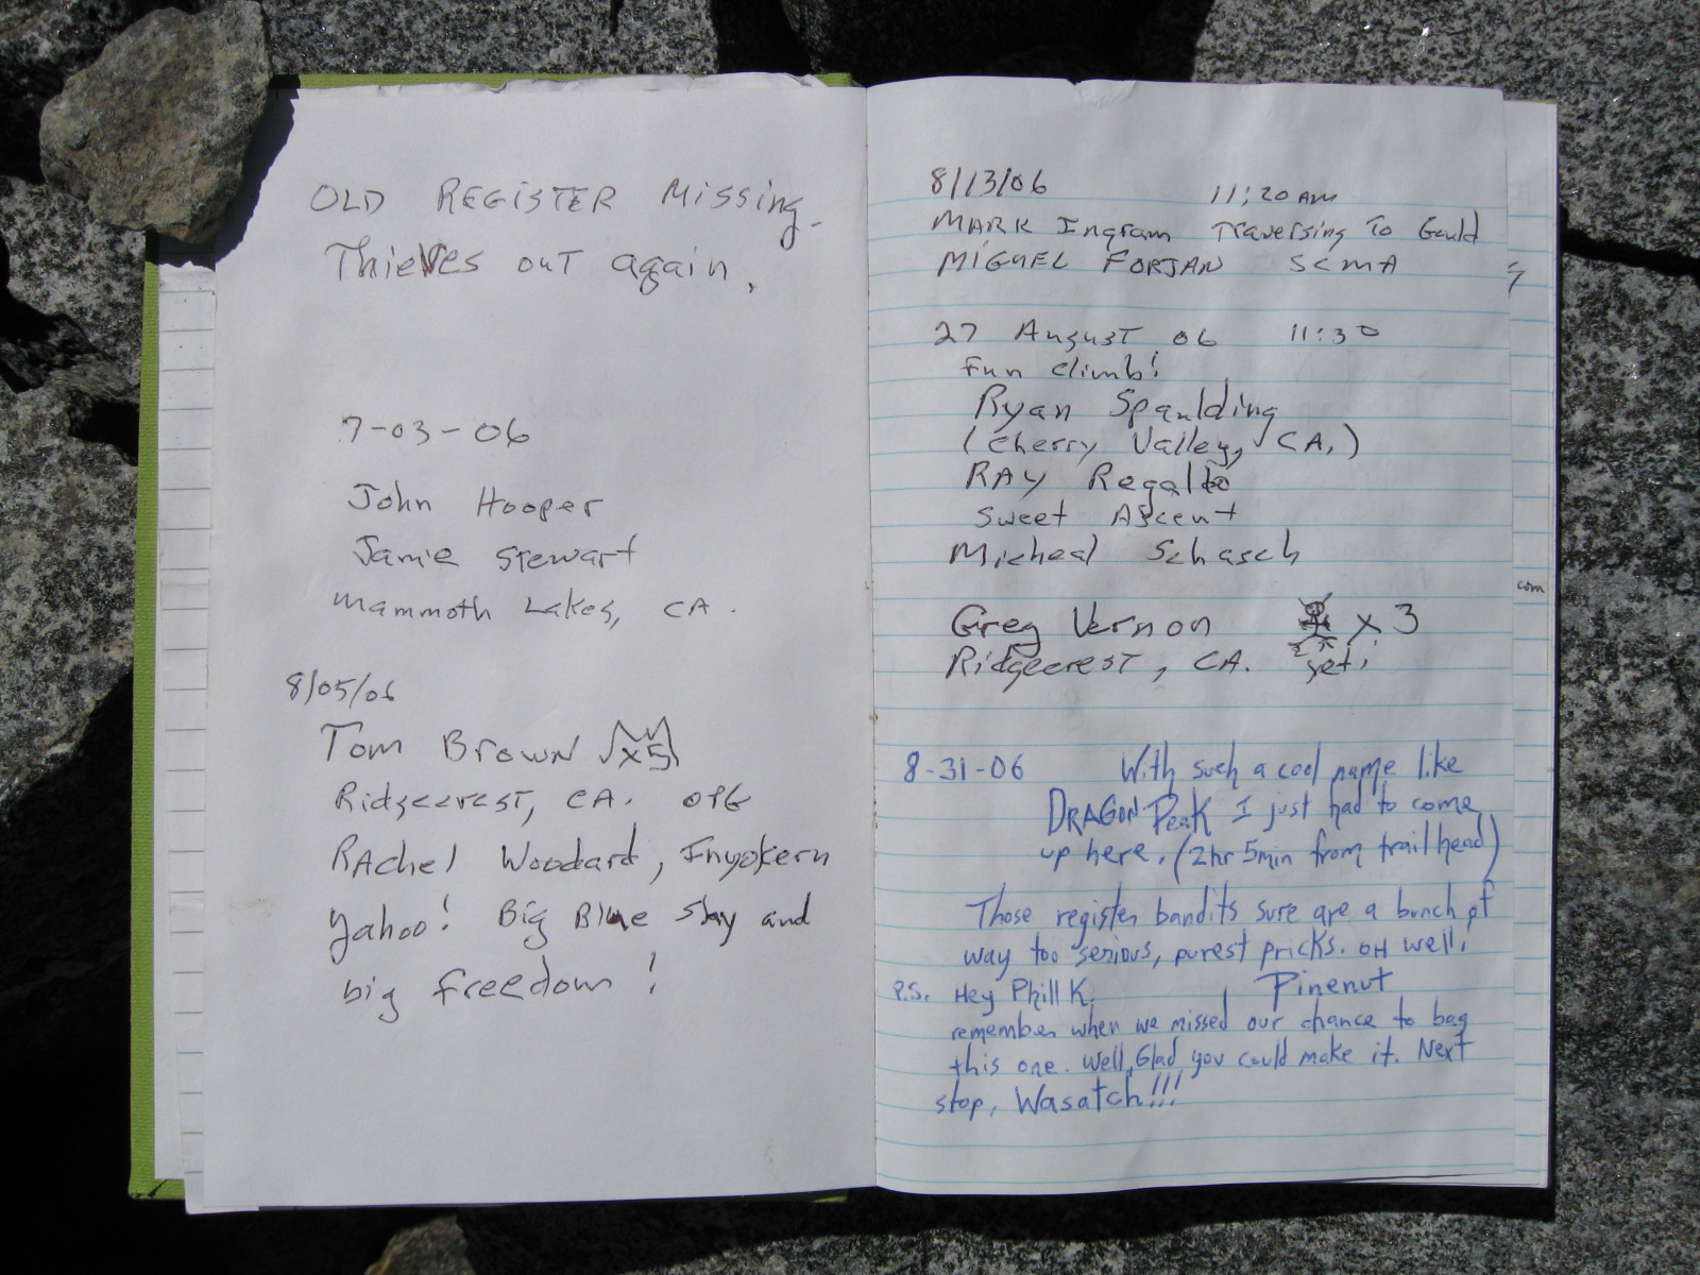 OLD REGISTER Missing.
Thieves out again.
7-03-06
John Hooper
Jamie Stewart
Mammoth Lakes, CA.
8/05/06
Tom Brown x5
Ridgecrest, CA. OPG
RAchel Woodard, Inyokern
Yahoo! Big Blue Sky and
big freedom!
8/13/06 11:20 AM
MARK Ingram Traversing To Gould
MIGUEL FORJAN SCMA
27 August 06 11:30
Fun climb!
Ryan Spaulding
(Cherry Valley, CA,)
RAY Regalto
Sweet Ascent
Micheal Schasch
Greg Vernon x 3
Ridgecrest, CA. yeti
8-31-06 With such a cool name like
DRAGON PeaK I just had to come
up here. (2hr 5min from trailhead)
Those register bandits sure are a bunch of
way too serious, purest pricks. OH well,
Pinenut
P.S. Hey Phill K,
remember when we missed our chance to bag
this one. Well, Glad you could make it. Next
stop, Wasatch!!!
com